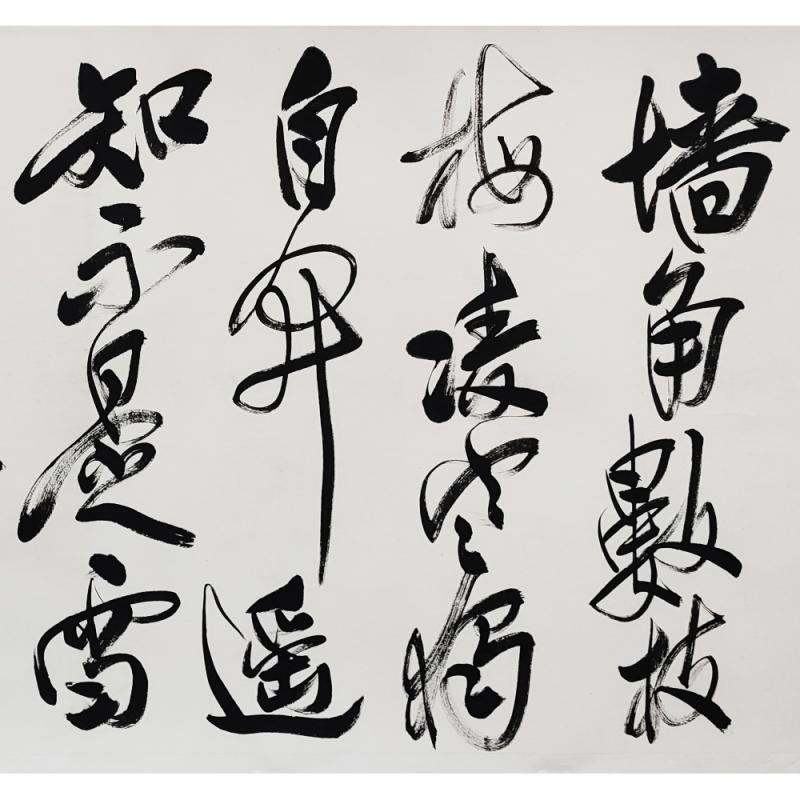 墙角數枝
梅凌寒獨
自開遥
知不是雪